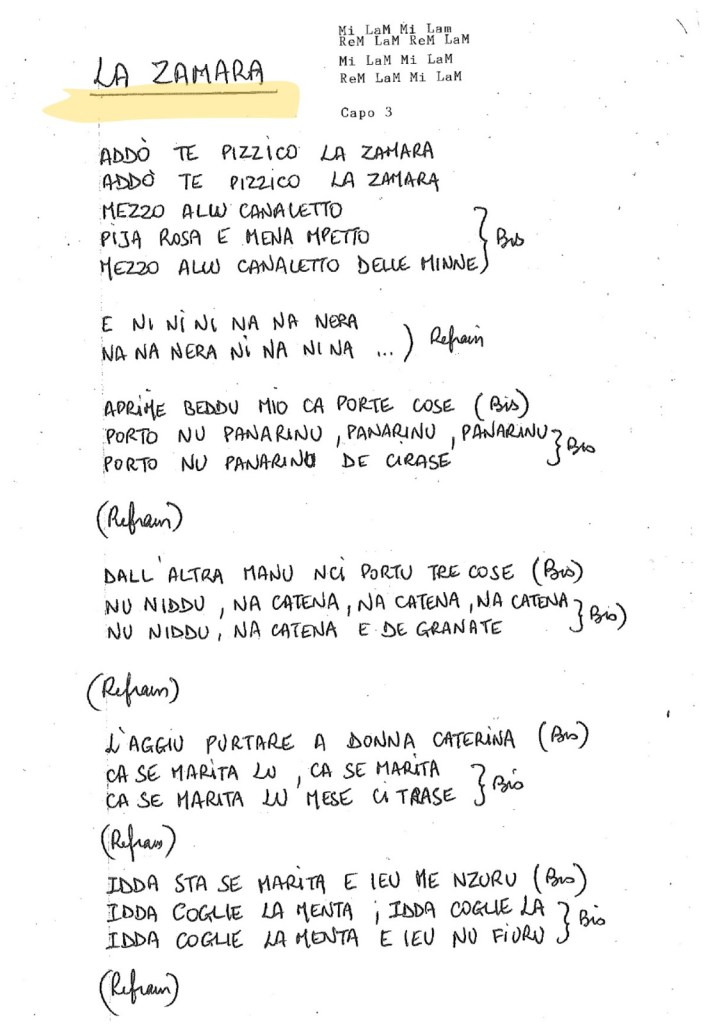 Mi LaM Mi Lam
ReM LaM ReM LaM
Mi LaM Mi LaM
ReM LaM Mi LaM
LA ZAMARA
Capo 3
ADDÒ TE PIZZICO LA ZAMARA
ADDÒ TE PIZZICO LA ZAMARA
MEZZO ALLU CANALETTO
PIJA ROSA E MENA MPETTO
MEZZO ALLU CANALETTO DELLE MINNE } Bis
E NI NI NI NA NA NERA
NA NA NERA NI NA NI NA ... ) Refrain
APRIME BEDDU MIO CA PORTE COSE (Bis)
PORTO NU PANARINU, PANARINU, PANARINU
PORTO NU PANARINU DE CIRASE } Bis
(Refrain)
DALL'ALTRA MANU NCI PORTU TRE COSE (Bis)
NU NIDDU, NA CATENA, NA CATENA, NA CATENA
NU NIDDU, NA CATENA E DE GRANATE } Bis)
(Refrain)
L'AGGIU PURTARE A DONNA CATERINA (Bis)
CA SE MARITA LU, CA SE MARITA
CA SE MARITA LU MESE CI TRASE } Bis
(Refrain)
IDDA STA SE MARITA E IEU ME NZURU (Bis)
IDDA COGLIE LA MENTA, IDDA COGLIE LA
IDDA COGLIE LA MENTA E IEU NU FIURU } Bis
(Refrain)